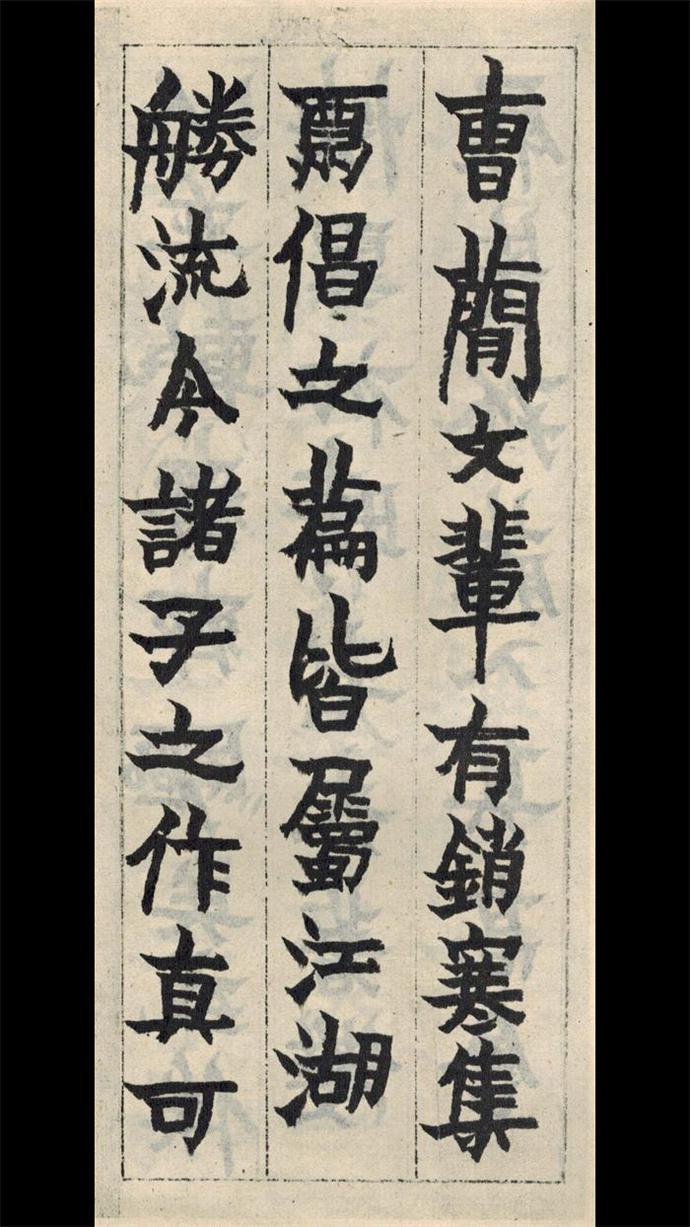 曺蕳文輩有銷寒集
倡之篇皆屬江湖
勝流今諸子之作真可